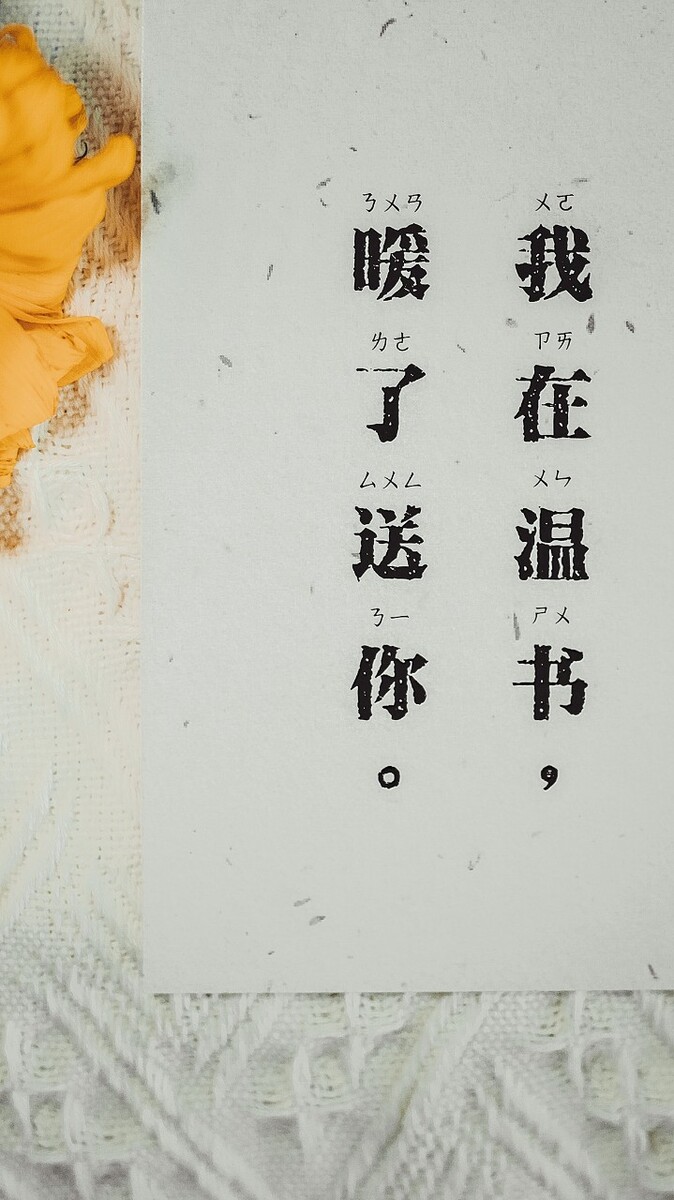 我在温书，
暖了送你。
ㄨㄛ ㄗㄞ ㄨㄣ ㄕㄨ
ㄋㄨㄢ ㄌㄜ ㄙㄨㄥ ㄋㄧ